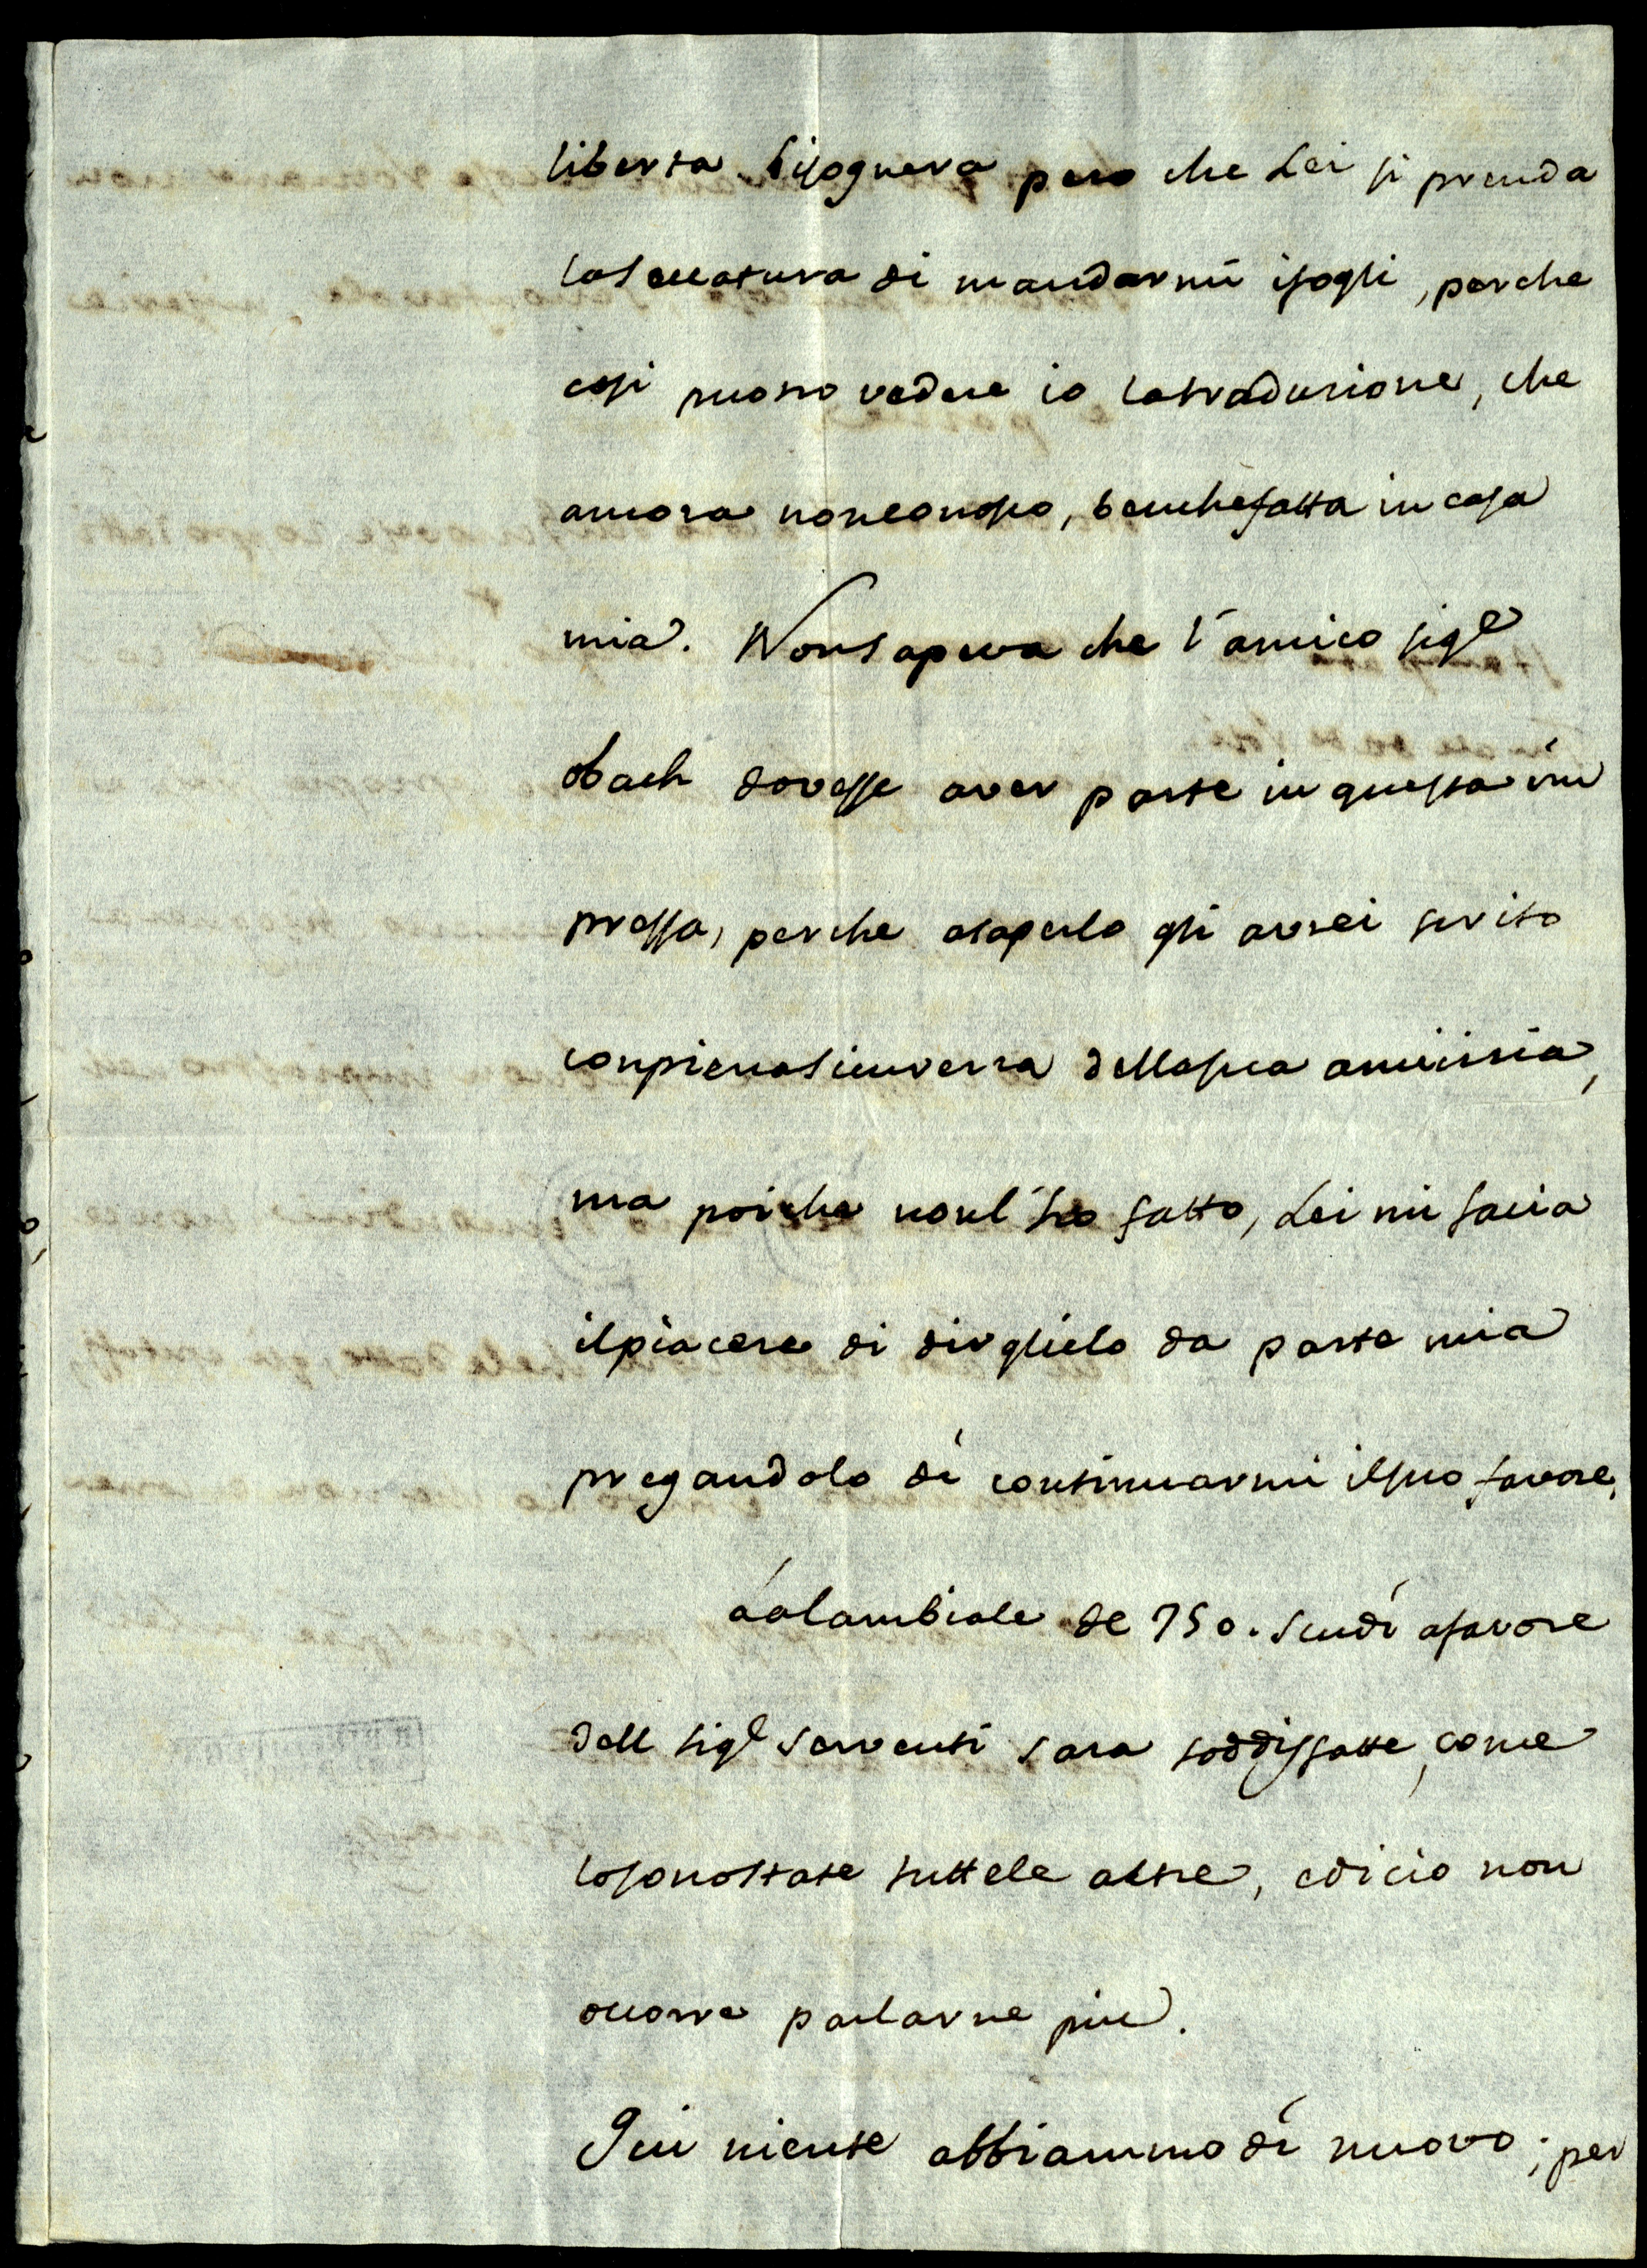 liberta. bisognera pero che Lei si prenda
laseccatura di mandarmi ifogli, perche
cosi possro vedere io latraduzione, che
ancora nonconosco, benchefatta in casa
mia. Nonsapeva che l'amico sigr
Bach dovesse aver parte in questa im
pressa, perche asaperlo gli avrei servito
conpienasincerezza dellasua amicizia,
ma poiche nonl'ho fatto, Lei mi facia
ilpiacere di dirglielo da parte mia
pregandolo di continuarmi ilsuo favore,
Lalambiale de 750. scudi afavore
dell sigr Serventi sara soddisfatte, come
losonostate tuttele altre, edicio non
occorre parlarne piu.
Qui niente abbiammo di nuovo; per